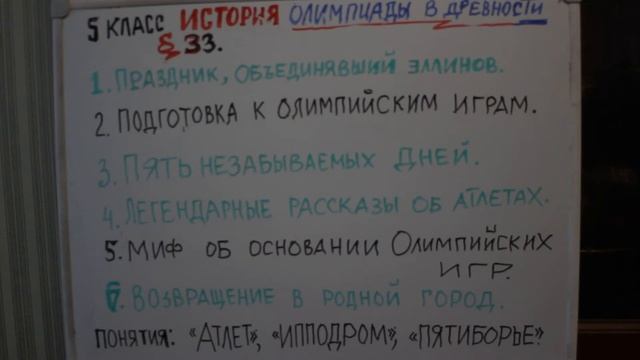 5 КЛАСС ИСТОРИЯ ОЛИМПИАДЫ В ДРЕВНОСТИ
§ 33.
1. ПРАЗДНИК, ОБЪЕДИНЯВШИЙ ЭЛЛИНОВ.
2. ПОДГОТОВКА К ОЛИМПИЙСКИМ ИГРАМ.
3. ПЯТЬ НЕЗАБЫВАЕМЫХ ДНЕЙ.
4. ЛЕГЕНДАРНЫЕ РАССКАЗЫ ОБ АТЛЕТАХ.
5. МИФ ОБ ОСНОВАНИИ ОЛИМПИЙСКИХ
ИГР.
6. ВОЗВРАЩЕНИЕ В РОДНОЙ ГОРОД.
ПОНЯТИЯ: «АТЛЕТ», «ИППОДРОМ», «ПЯТИБОРЬЕ».